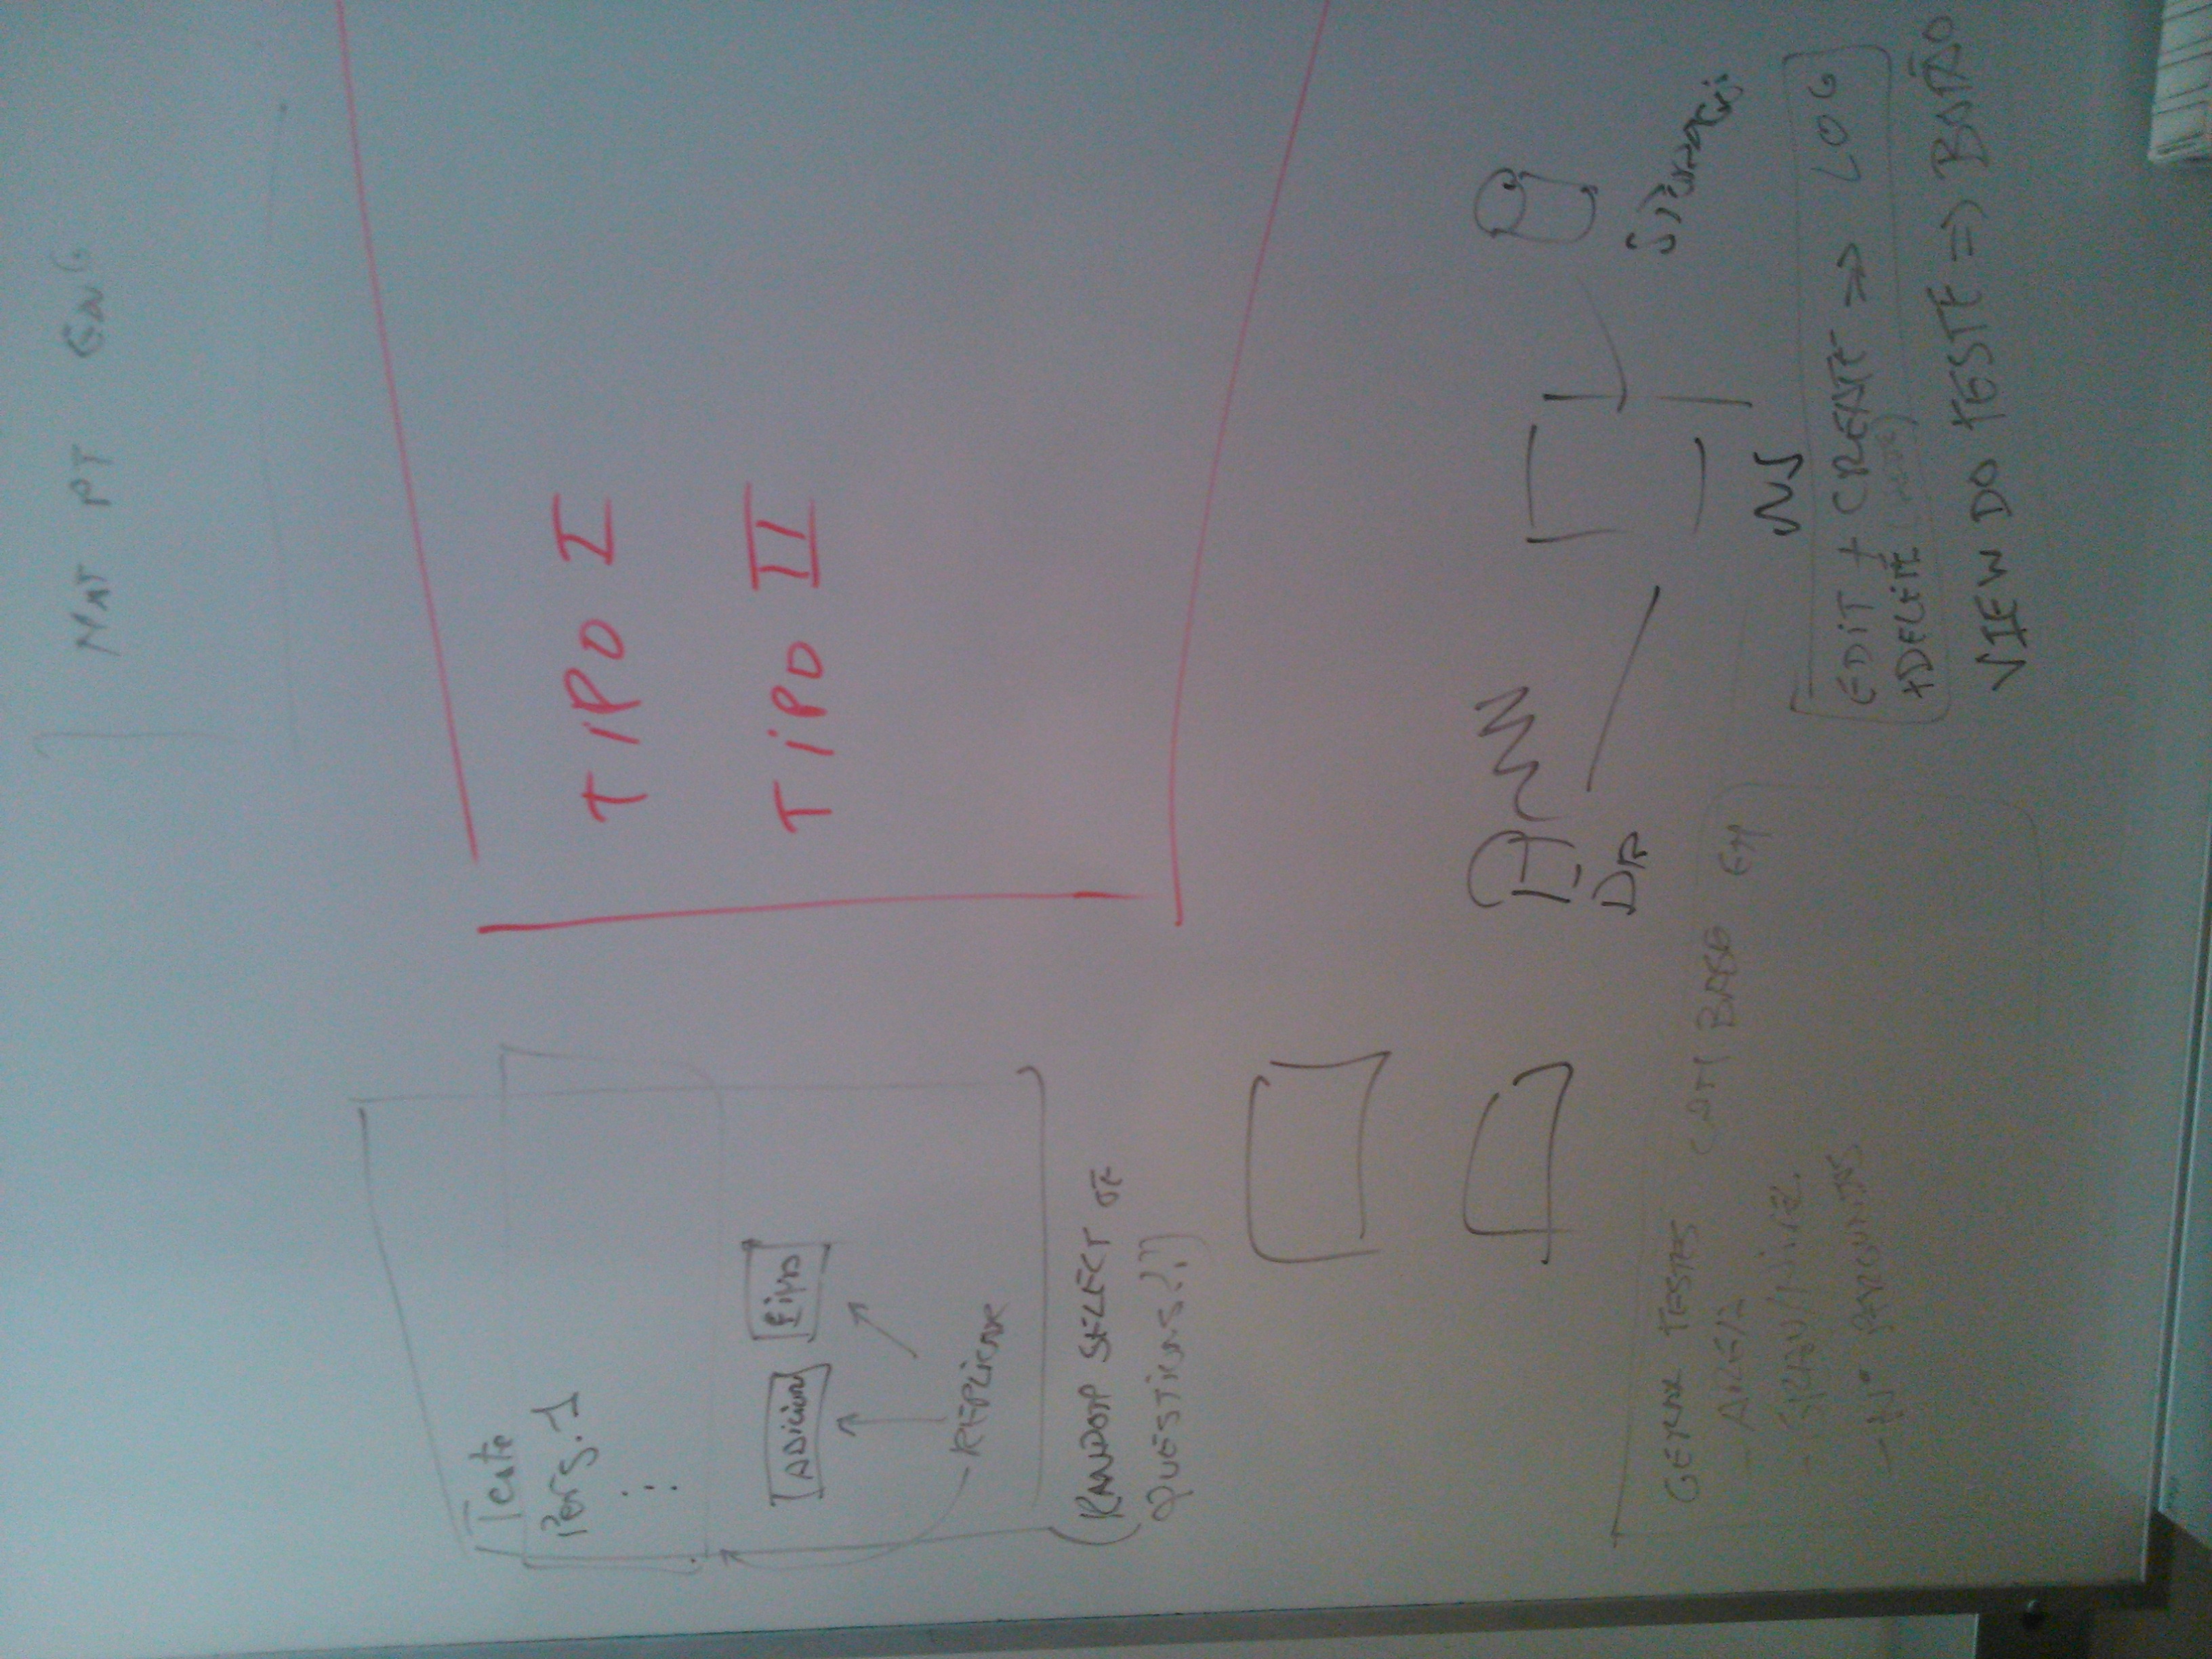 MAT PT ENG
Teste
Perg. 1
⋮
ADICION
REPLICAR
(RANDOM SELECT OF
QUESTIONS?!)
TIPO I
TIPO II
DB
WS
GERAR TESTES COM BASE EM
- AREA
- GRAU/NIVEL
- Nº PERGUNTAS
EDIT + CREATE => LOG
+DELETE
VIEW DO TESTE => BOTÃO